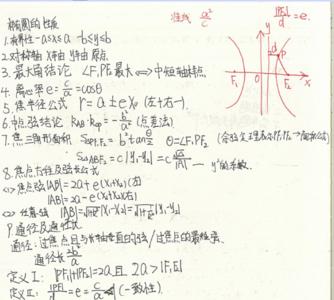 椭圆的性质
准线 a²/c
|PF|/d = e.
1.有界性 -a≤x≤a -b≤y≤b
2.对称轴 x轴 y轴 原点
3.最大角结论 ∠F₁PF₂最大⇔P为短轴端点
4.离心率 e=c/a=cosθ
5.焦半径公式 r=a±ex₀ (左+右-).
6.中点弦结论 k_AB·k_OP=-b²/a² (点差法)
7.焦三角形面积 S△PF₁F₂=b²tanθ/2 θ=∠F₁PF₂
S△ABF₂=c|y₁-y₂|=c√Δ/|A|
8.焦点弦及弦长公式
<1>焦点弦|AB|=2a+e(x₁+x₂)(左)
|AB|=2a-e(x₁+x₂)(右)
<2>任意弦 |AB|=√1+k²|x₁-x₂|=√1+1/k²|y₁-y₂|
9.通径及通径长
通径:过焦点且与长轴垂直的弦/过焦点的最短弦.
通径长 2b²/a
定义I:|PF₁|+|PF₂|=2a 且 2a>|F₁F₂|
定义II:|PF|/d=e=c/a
y
d
P
F₁
O
F₂
x